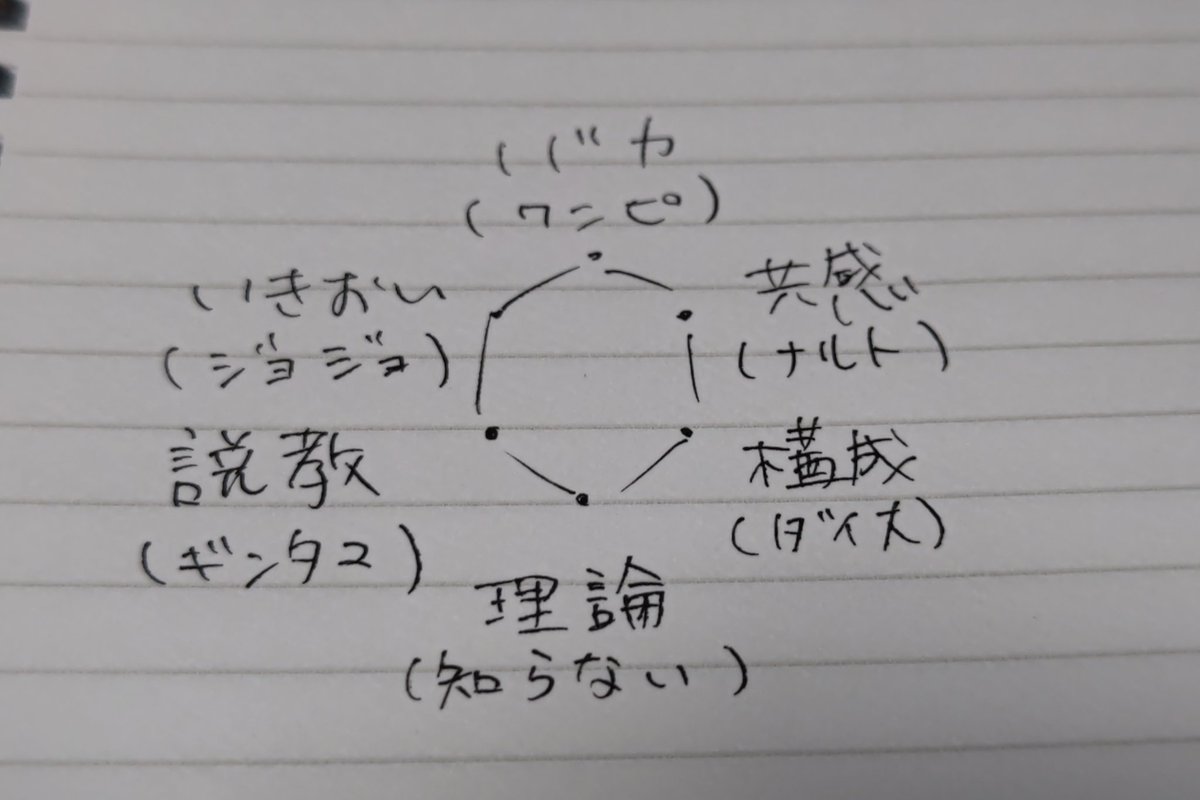 バカ
(ワンピ)
いきおい
(ジョジョ)
共感
(ナルト)
説教
(ギンタマ)
構成
(ダイ大)
理論
(知らない)